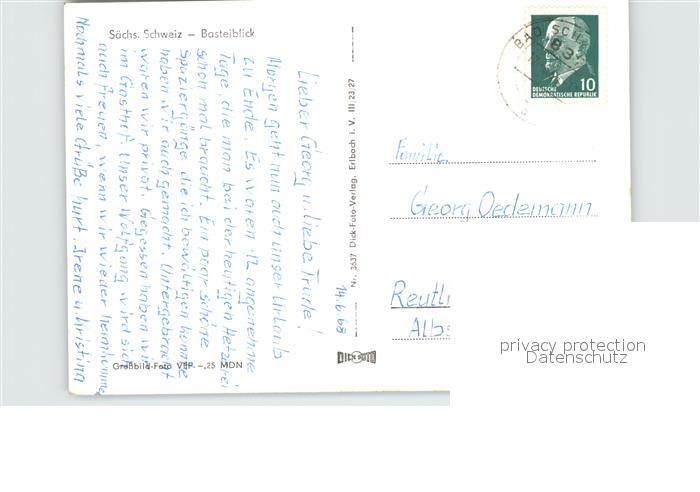 Sächs. Schweiz – Basteiblick
Lieber Georg u. liebe Trude!
Morgen geht nun auch unser Urlaub
zu Ende. Es waren 12 angenehme
Tage, die man bei der heutigen Hetzerei
schon mal braucht. Ein paar schöne
Spaziergänge die ich bewältigen konnte
haben wir auch gemacht. Untergebracht
waren wir privat. Gegessen haben wir
im Gasthof. Unser Wolfgang wird sich
auch freuen, wenn wir wieder heimkommen
Nochmals viele Grüße Kurt. Irene u. Kristina
Großbild-Foto VEP –,25 MDN
14.6.68
Nr. 3637 Dick-Foto-Verlag, Erlbach i. V. III/23/27
DICK FOTO
BAD SCH
83
10
DEUTSCHE
DEMOKRATISCHE REPUBLIK
Familie
Georg Oedemann
Reutli
Alb
privacy protection
Datenschutz